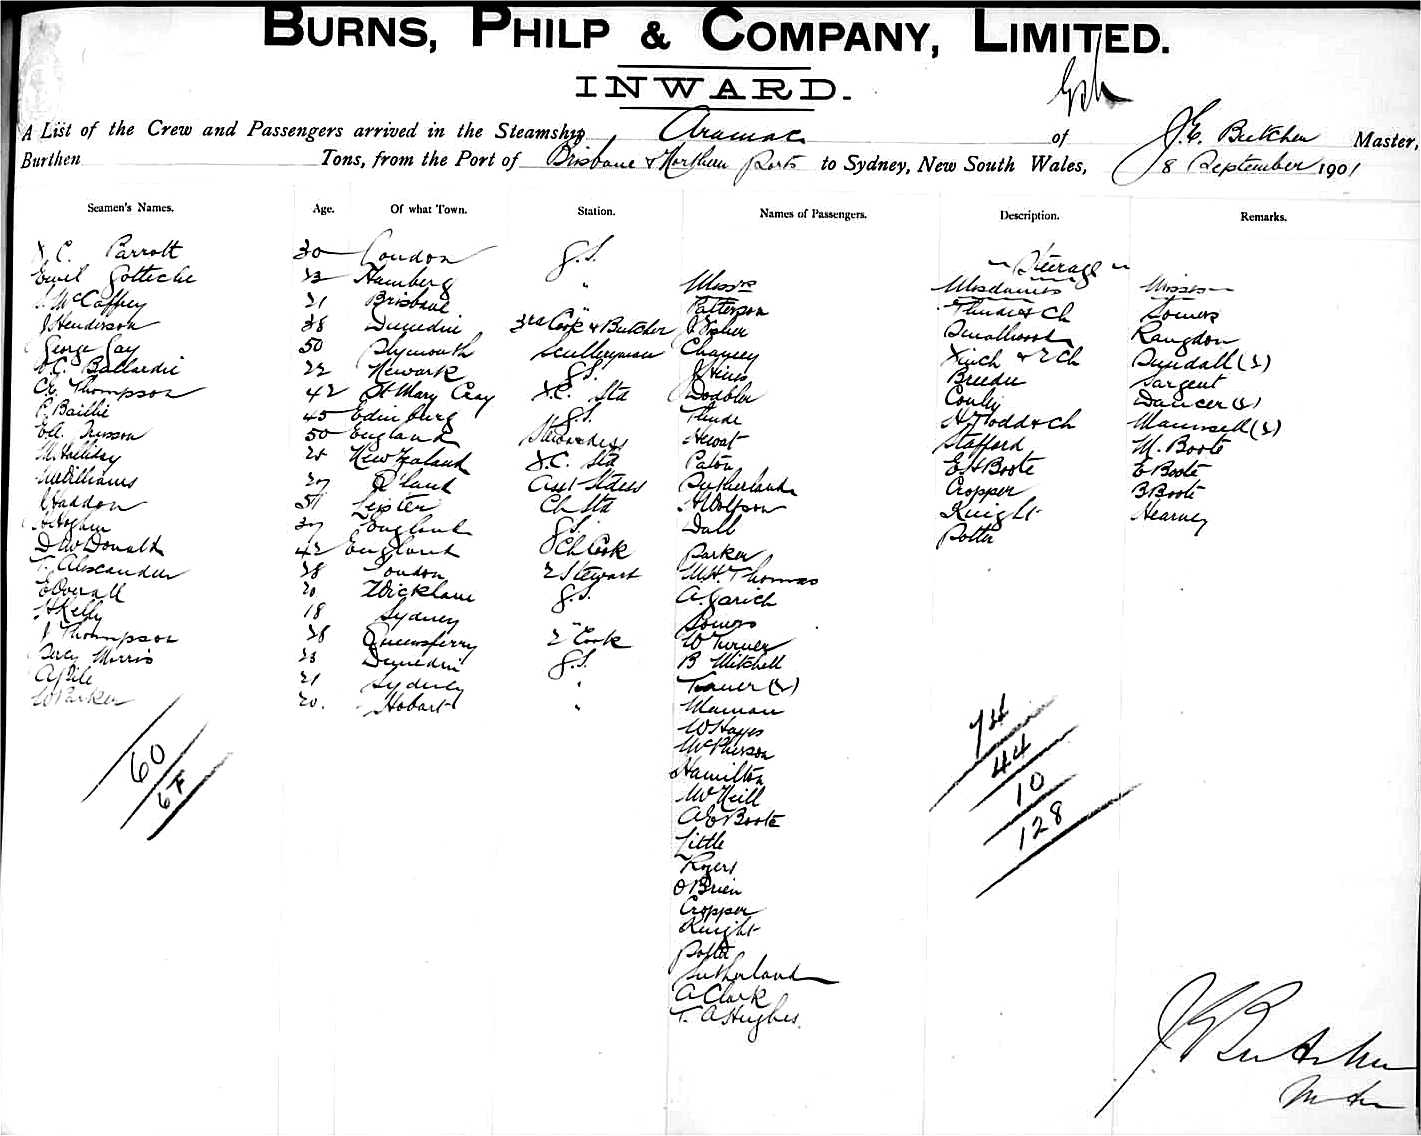 BURNS, PHILP & COMPANY, LIMITED.
INWARD.
A List of the Crew and Passengers arrived in the Steamship Aramac of J. E. Butcher Master,
Burthen Tons, from the Port of Brisbane & Northern Ports to Sydney, New South Wales, 8 September 1901
Seamen's Names. Age. Of what Town. Station. Names of Passengers. Description. Remarks.
C. Parrott 30 London G.S.
Steerage
33 Hamberg " Messrs Mesdames Misses
McCaffrey 21 Brisbane " Patterson & Ch Somers
J Henderson 38 Dunedin 3rd Cook & Butcher J Fisher Smallwood Rangdon
George Gay 50 Plymouth Sculleryman Chancey Finch & 2 Ch Rundall (2)
22 Newark G.S. J Hines Breeden Sargent
C. Thompson 42 St Mary Cray Std Dodbler Conly Dancer (2)
P. Baillie 45 Edinburg G.S. Thude H Todd & Ch Maunsell (2)
50 England Stewardess Hewat Stafford M. Boote
M Halliday New Zealand Std Paton E A Boote E Boote
Williams Q'land Stdess Sutherland Cropper B Boote
J Haddon 51 Ch Std H Wolfson Knight Hearney
England G.S. Dall Potter
D McDonald 42 England Ch Cook Parker
T. Alexander 38 London 2 Stewart M. H. Thomas
E Overall 20 G.S. A. Garich
H Kelly 18 Sydney " Somers
J Thompson 38 Queensferry 2 Cook W Turner
Percy Morris 23 Dunedin G.S. B Mitchell
A Pile 21 Sydney " (2)
W Parker 20. Hobart "
W Hayes
McPherson
Hamilton
McNeill
A E Boote
Little
Rogers
O Brien
Cropper
Knight
Potter
Sutherland
A Clark
T. A Hughes.
60
6F
74
44
10
128
J E Butcher